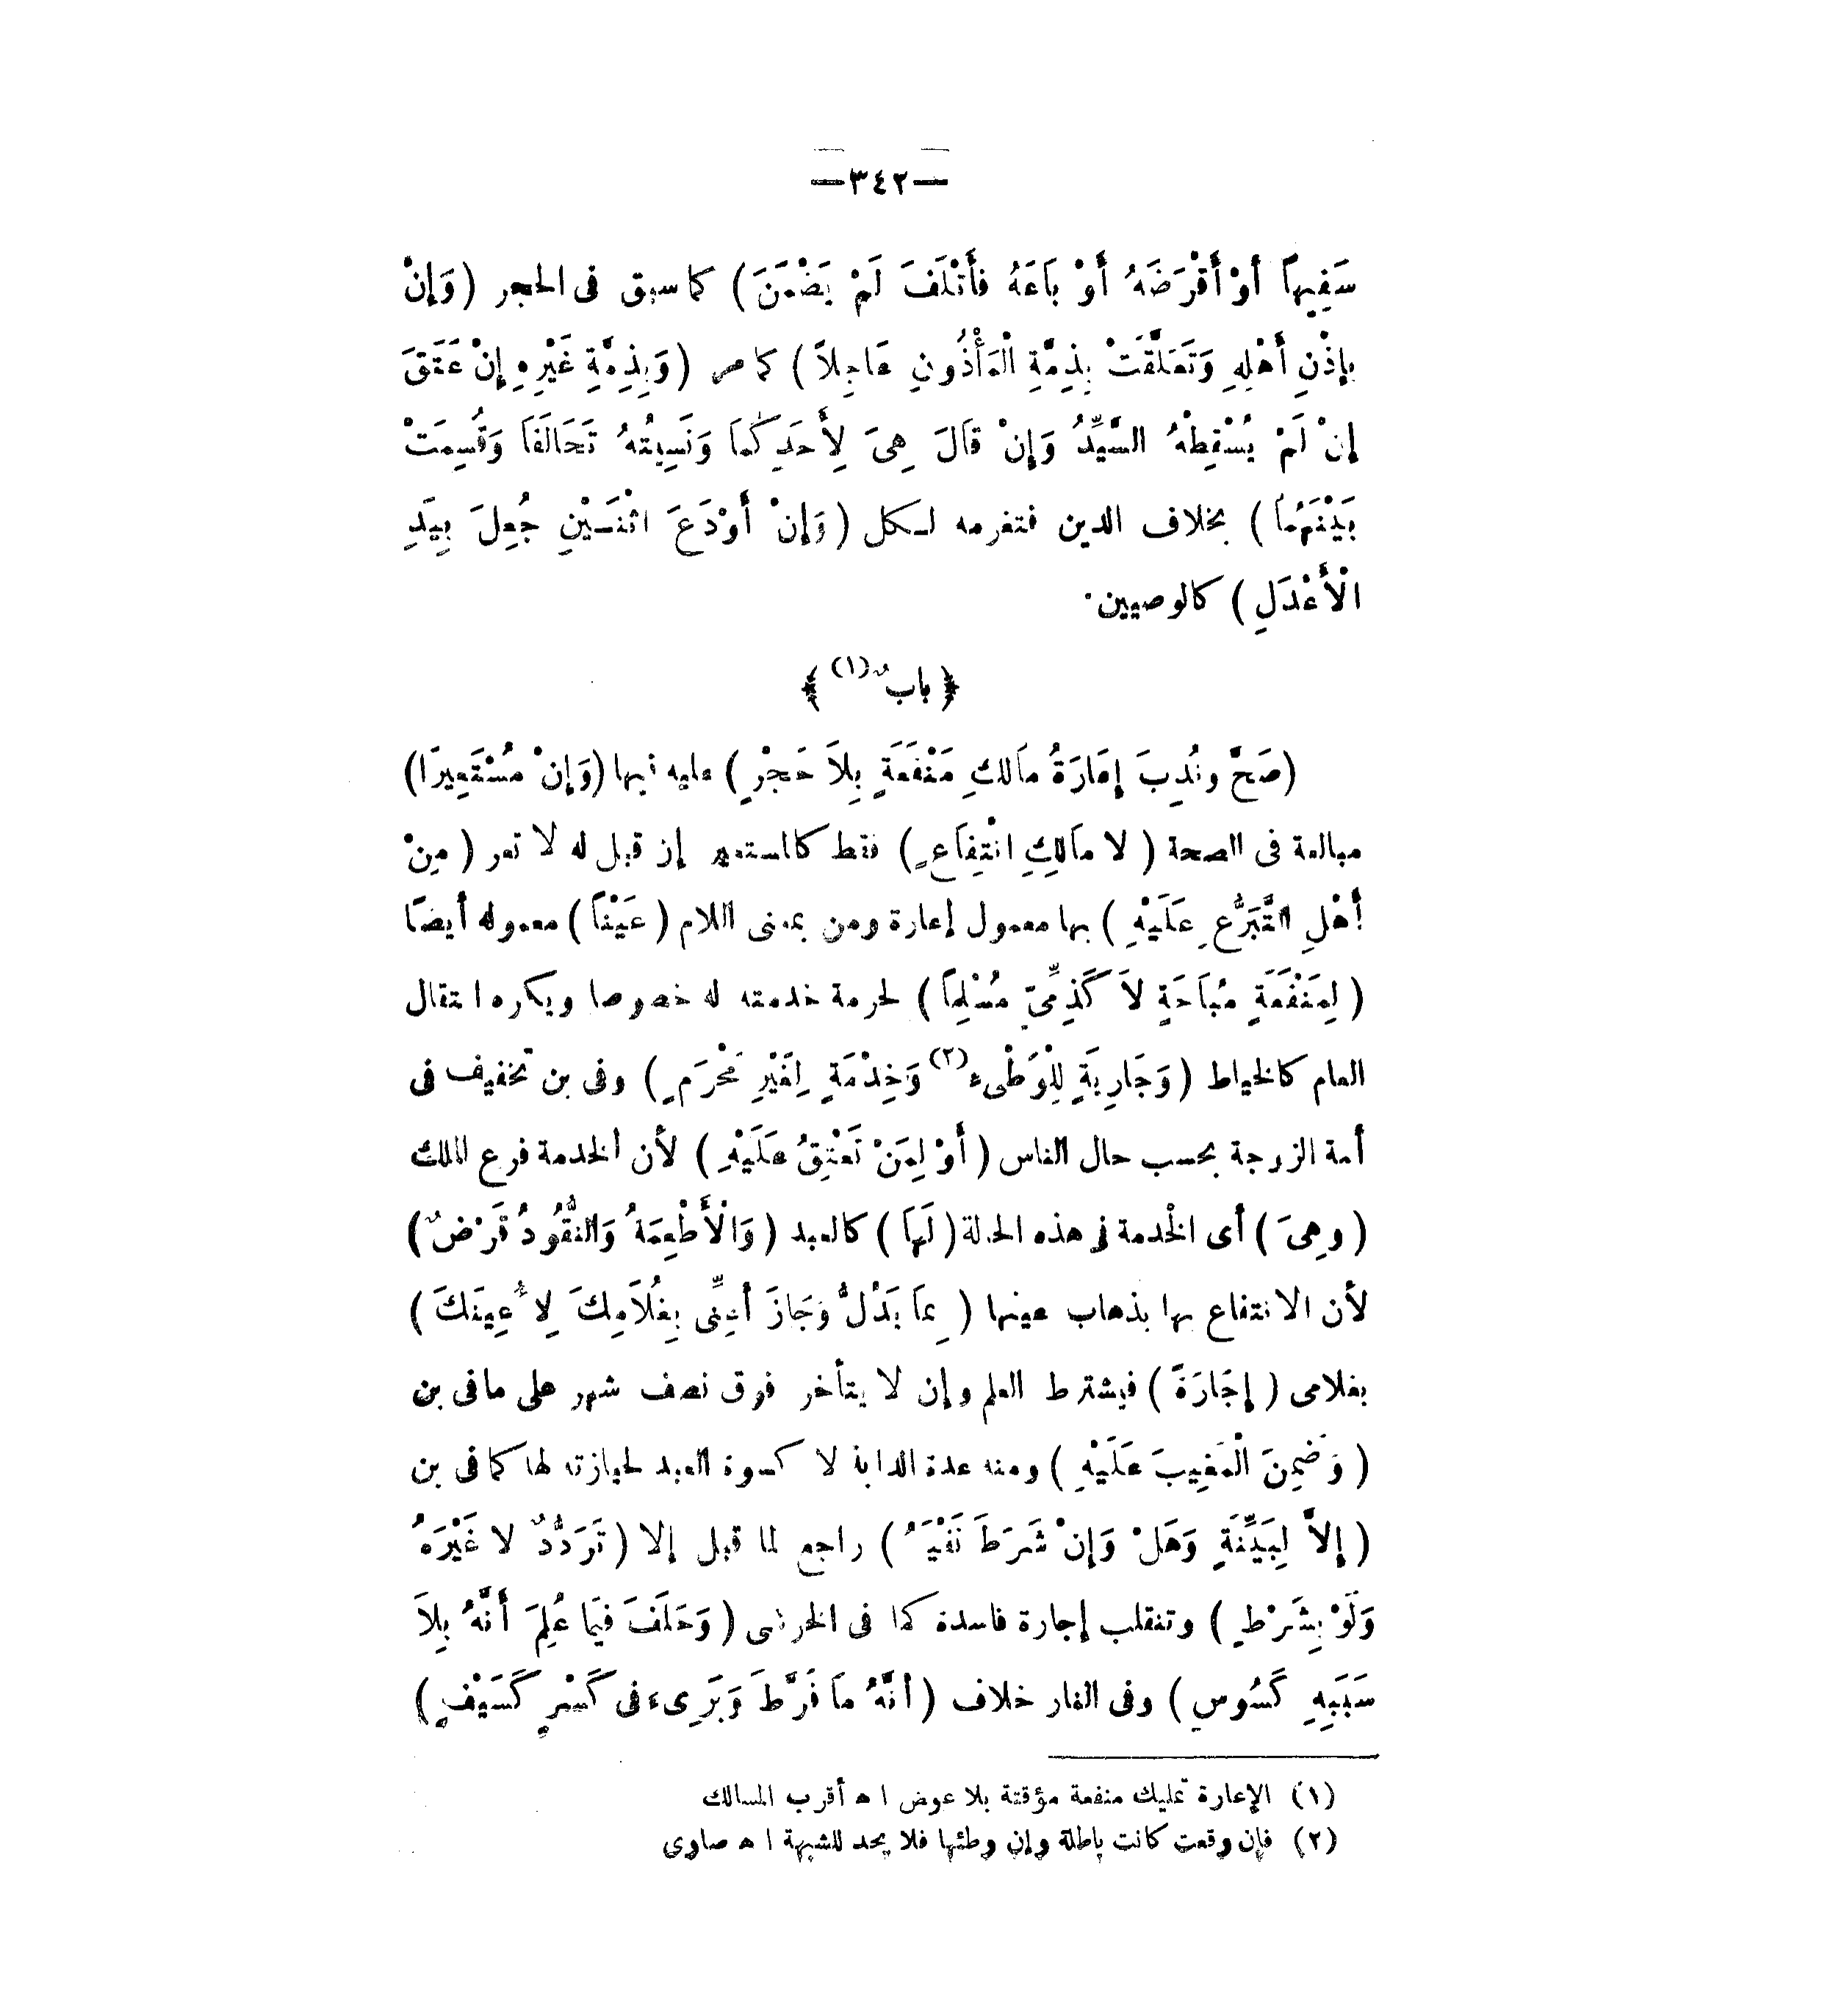 —٣٤٢—
سَفِيهاً أَوْ أَقْرَضَهُ أَوْ بَاعَهُ فَأَتْلَفَ لَمْ يَضْمَنَ ) كما سبق فى الحجر ( وَإِنْ
بِإِذْنِ أَهْلِهِ وَتَعَلَّقَتْ بِذِمَّةِ الْمَأْذُونِ عَاجِلاً ) كما مر ( وَبِذِمَّةِ غَيْرِهِ إِنْ عَتَقَ
إِنْ لَمْ يُسْقِطْهُ السَّيِّدُ وَإِنْ قَالَ هِىَ لِأَحَدِكُمَا وَنَسِيتُهُ تَحَالَفَا وَقُسِمَتْ
بَيْنَهُمَا ) بخلاف الدين فتغرمه لكل ( وَإِنْ أَوْدَعَ اثْنَيْنِ جُعِلَ بِيَدِ
الْأَعْدَلِ ) كالوصيين ٠
﴿ بابٌ (١) ﴾
( صَحَّ وَنُدِبَ إِعَارَةُ مَالِكِ مَنْفَعَةٍ بِلاَ حَجْرٍ ) عليه فيها ( وَإِنْ مُسْتَعِيرًا )
مبالغة فى الصحة ( لا مَالِكِ انْتِفَاعٍ ) فقط كالمستعير إن قيل له لا تعر ( مِنْ
أَهْلِ التَّبَرُّعِ عَلَيْهِ ) بها معمول إعارة ومن بمعنى اللام ( عَيْنًا ) معموله أيضًا
( لِمَنْفَعَةٍ مُبَاحَةٍ لاَ كَذِمِّىٍّ مُسْلِمًا ) لحرمة خدمته له خصوصا ويكره انتقال
العام كالخياط ( وَجَارِيَةٍ لِلْوَطْىءِ (٢) وَخِدْمَةٍ لِغَيْرِ مَحْرَمٍ ) وفى بن تخفيف فى
أمة الزوجة بحسب حال الناس ( أَوْ لِمَنْ تَعْتِقُ عَلَيْهِ ) لأن الخدمة فرع الملك
( وهِىَ ) أى الخدمة فى هذه الحالة ( لَهَا ) كالعبد ( وَالْأَطْعِمَةُ وَالنُّقُودُ قَرْضٌ )
لأن الانتفاع بها بذهاب عينها ( بِمَا يَدُلُّ وَجَازَ أَعِنِّى بِغُلاَمِكَ لِأُعِينَكَ )
بغلامى ( إِجَارَةً ) فيشترط العلم وإن لا يتأخر فوق نصف شهر على ما فى بن
( وَضَمِنَ الْمَغِيبَ عَلَيْهِ ) ومنه عدة الدابة لا كسوة العبد لحيازته لها كما فى بن
( إِلاَّ لِبَيِّنَةٍ وَهَلْ وَإِنْ شَرَطَ نَفْيَهُ ) راجع لما قبل إلا ( تَرَدُّدٌ لا غَيْرَهُ
وَلَوْ بِشَرْطٍ ) وتنقلب إجارة فاسدة كما فى الخرشى ( وَحَلَفَ فِيمَا عُلِمَ أَنَّهُ بِلاَ
سَبَبِهِ كَسُوسٍ ) وفى الفار خلاف ( أَنَّهُ مَا فَرَّطَ وَبَرِىءَ فى كَسْرٍ كَسَيْفٍ )
(١) الإعارة تمليك منفعة مؤقتة بلا عوض ا ه أقرب المسالك
(٢) فإن وقعت كانت باطلة وإن وطئها فلا يحد للشبهة ا ه صاوى